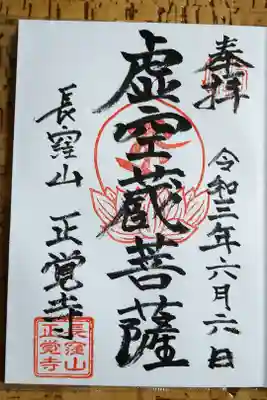 奉拝
令和三年六月六日
虚空蔵菩薩
長窪山 正覚寺
長窪山
正覚寺